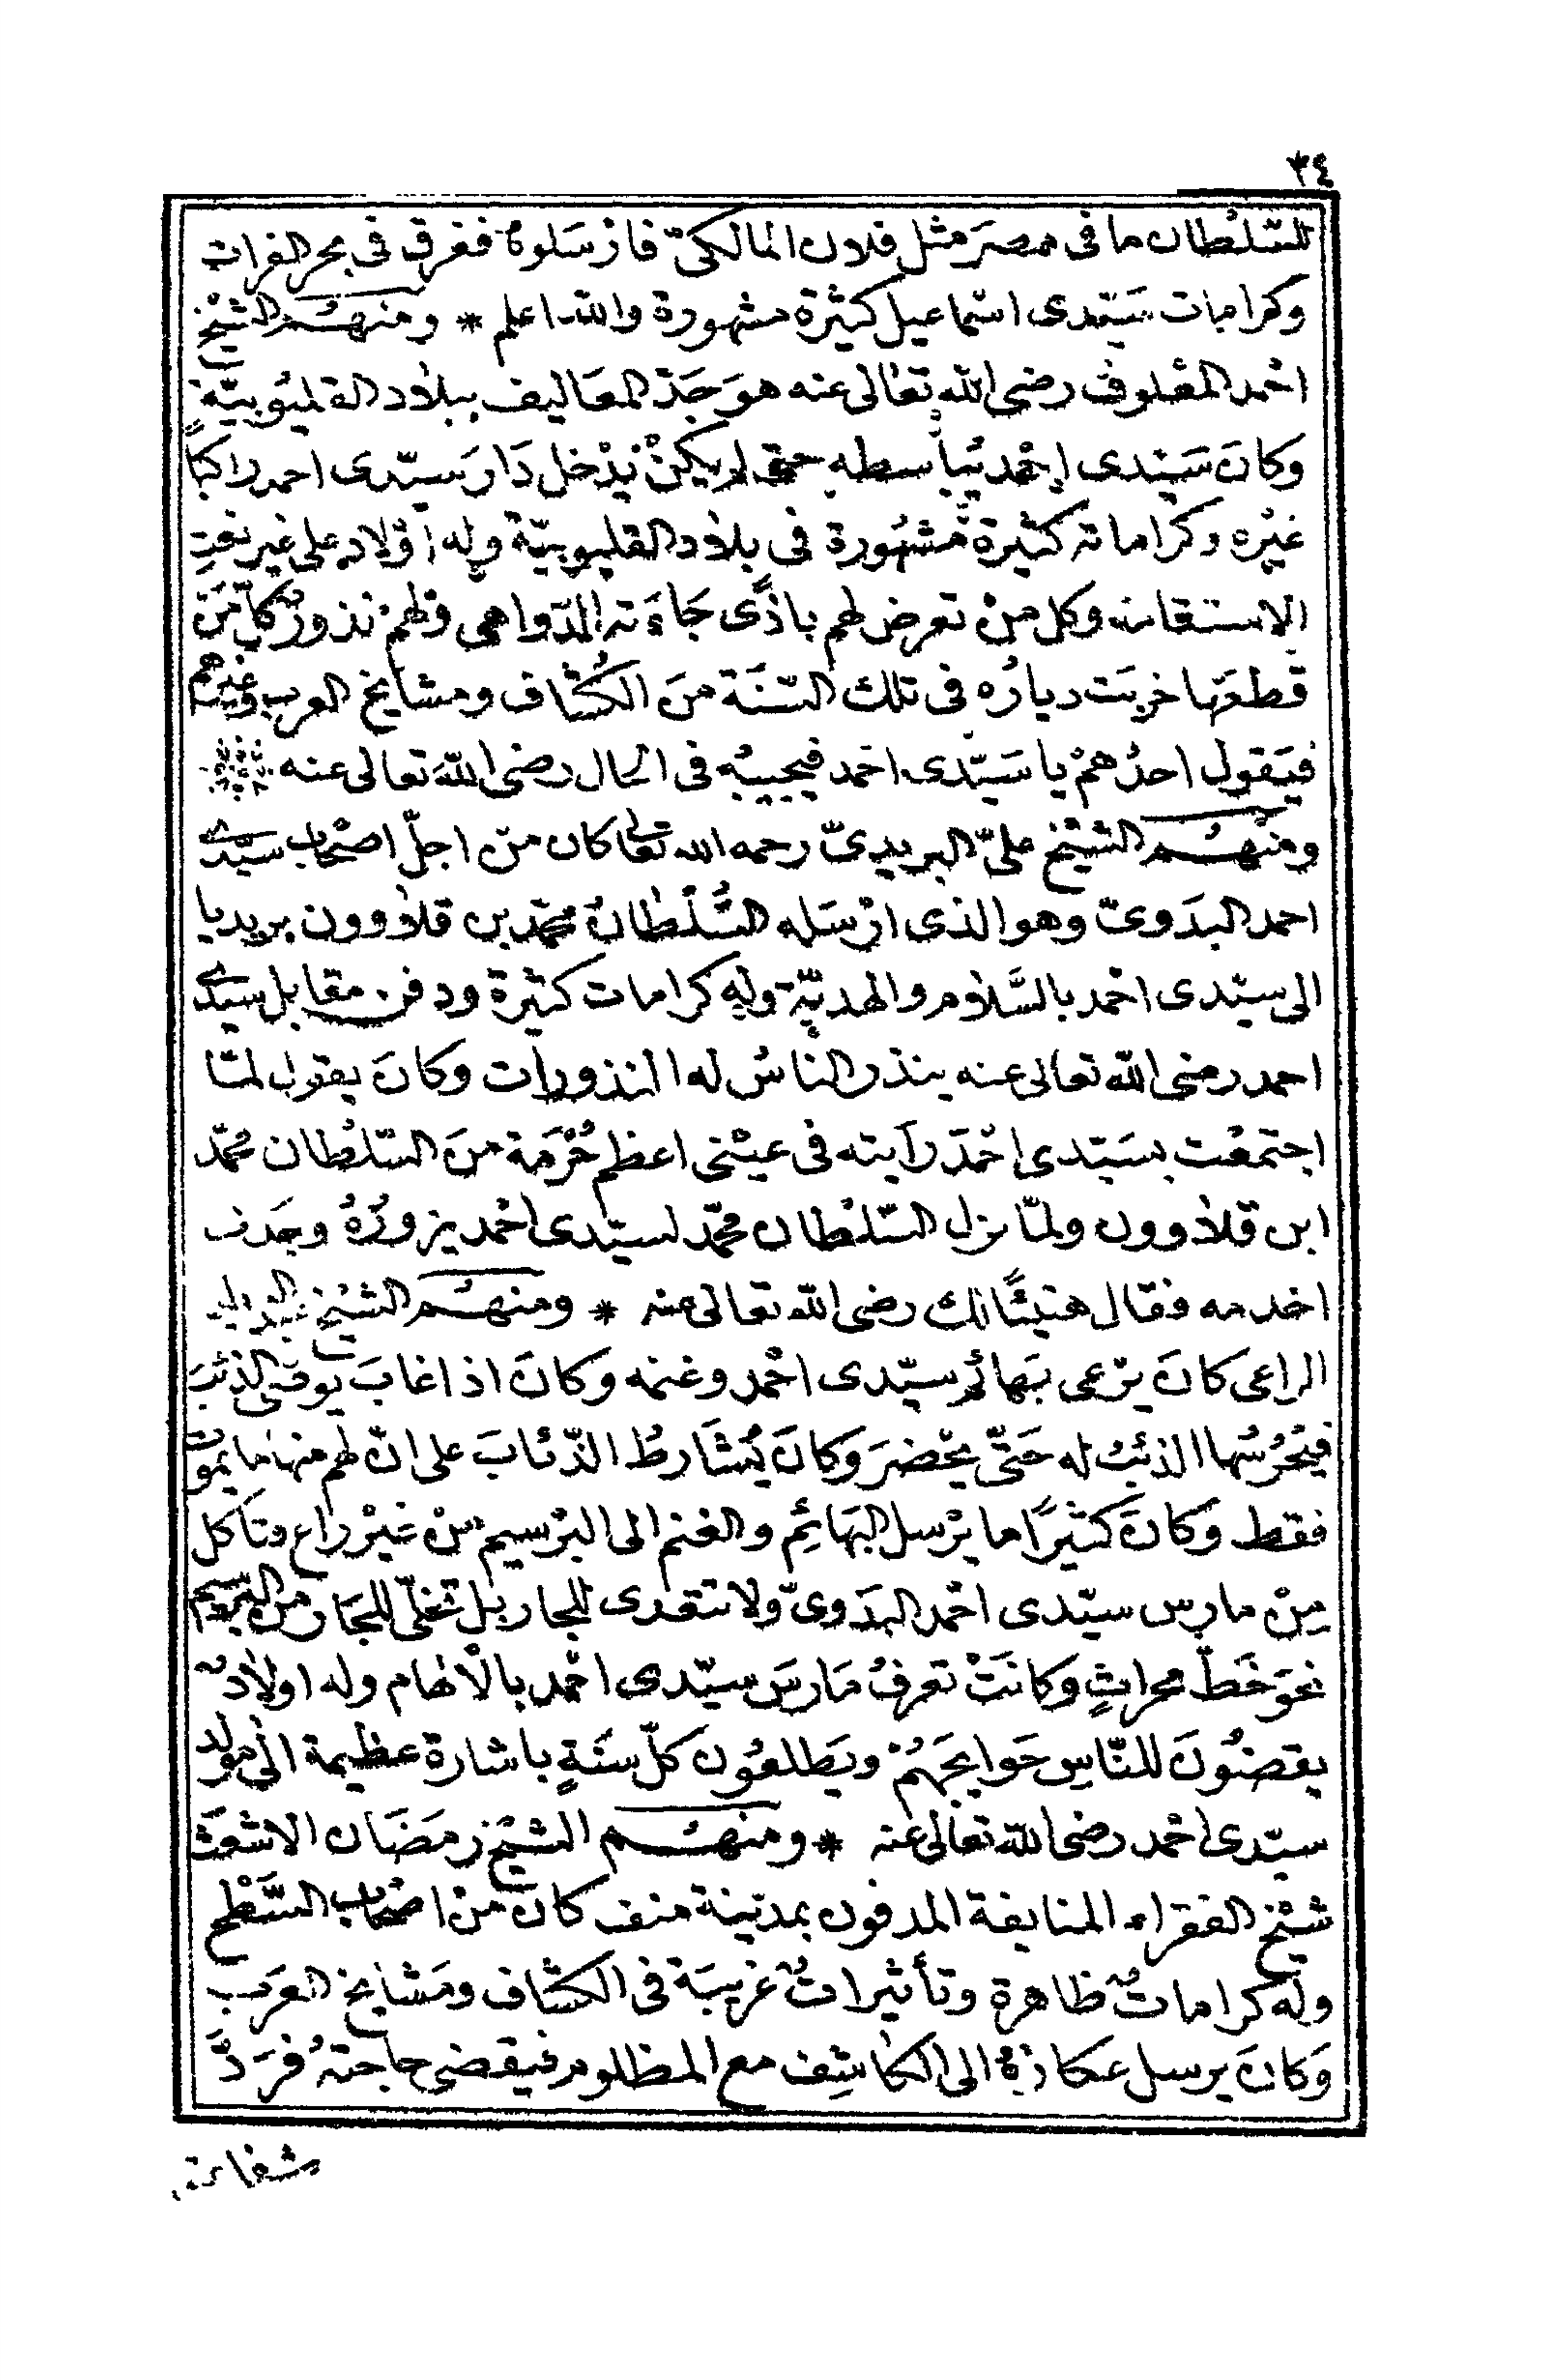 ٣٤
للسّلْطان ما فى مصرَ مثل فلان المالكىّ فارْسَلوهُ ففرق فى بحر الفرات
وكرامات سَيّدى اسْماعيل كثيرة مشهورة والله اعلم * ومنهُم الشيْخ
احْمد المعْلوف رضى الله تعالى عنه هوَ جَدّ المعَاليف ببلاد القليُوبيّة
وكانَ سَيّدى احْمد يُباسطه حتى لم يكنْ يَدْخل دَارَ سيّدى احمد راكبًا
غيْره وكراماته كثيْرة مشهُورة فى بلاد القليوبيّة وله اوْلاد على غير نعت
الاستقامة وكل منْ تعرض لهم باذًى جَاءَته الدّواهى ولهمْ نذورٌ كلّ مَنْ
قطعَها خربَت ديارُه فى تلك السّنَة منَ الكُشّاف ومشايخ العرب وغيرهم
فيَقول احدُهمْ يا سَيّدى احْمد فيجيبُه فى الحال رضى اللّه تعالى عنه
ومنْهُم الشيْخ علىّ البريدىّ رحمه الله تعالى كان من اجلّ اصْحاب سيّدى
احمد البدَوىّ وهو الذى ارْسَله السُّلْطانُ محمّد بن قلاوون بريديا
الى سيّدى احْمد بالسَّلاَم والهديّة وله كرامات كثيْرة ودفن مقابل سَيّدى
احمد رضى اللّه تعالى عنه ينذر الناسُ له النذورات وكانَ يقول لمّا
اجتمعْت بسَيّدى احْمَد رَأيته فى عيْنى اعظم حُرْمَة منَ السّلْطان محمّد
ابن قلاوون ولمّا نزل السّلْطان محمّد لسيّدى احْمد يزورُهُ وجَدنى
اخدمه فقال هنيئًا لك رضى اللّه تعالى عنه * ومنهُم الشيْخ
الراعى كانَ يرْعى بَهائم سيّدى احْمد وغنمه وكانَ اذا غابَ يوصّى الذئبَ
فيَحْرُسُها الذئبُ له حَتّى يحْضرَ وَكانَ يُشَارطُ الذّئابَ على انّ لهم منها ما يموت
فقط وَكانَ كثيْرًا ما يرْسل البَهائِم والغنم الى البرْسيم منْ غيْر راع وتأكل
مِنْ مارس سيّدى احْمد البدَوىّ ولا تتعدى للجار بَلْ تخلّى للجَار من البرسيم
نحوَ خَطّ محراثٍ وَكانَتْ تعرفُ مَارسَ سيّدى احْمد بالْالهام وله اولادٌ
يقضُونَ للنّاسِ حَوايجَهُمْ ويَطلعُون كلّ سنَةٍ باشارة عظيمة الى مولد
سيّدى احْمد رضى اللّه تعالى عنه * ومنهُم الشيْخ رمَضَان الاشعَث
شيْخ الفقراء المنايفة المدفون بمدينة منف كانَ منْ اصْحاب السَّطْح
وله كراماتٌ ظاهرة وتأثيراتٌ غريبَة فى الكشّاف ومَشايخ العَرَب
وَكانَ يرسل عكازهُ الى الكاشِف مع المظلوم فيقضى حاجتهُ فرَدَّ
شفاعته